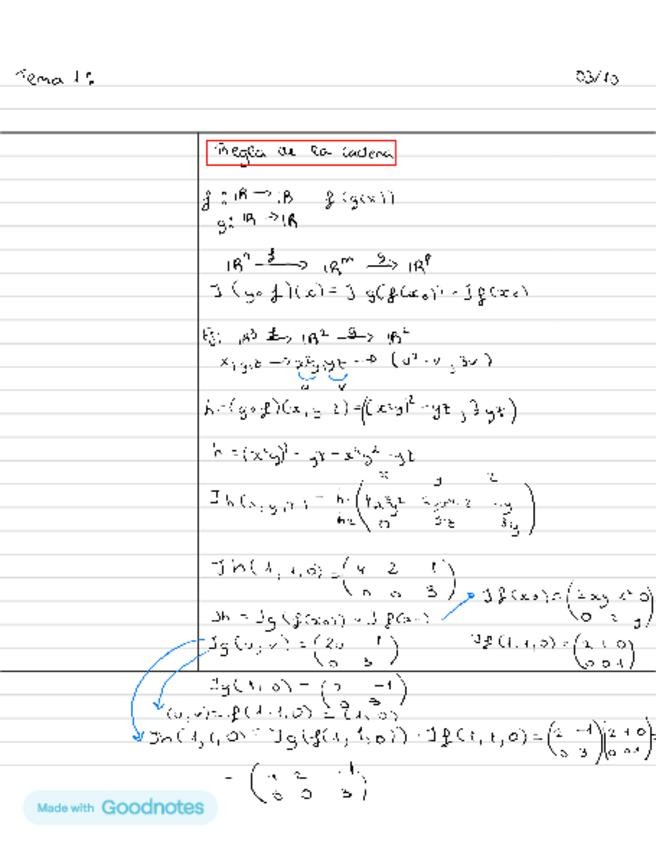 Tema 1: 03/10
Regla de la cadena
f: ℝ → ℝ f(g(x))
g: ℝ → ℝ
ℝⁿ —f→ ℝᵐ —g→ ℝᵖ
J(g∘f)(x) = J g(f(x₀)) · J f(x₀)
Ej: ℝ³ —f→ ℝ² —g→ ℝ²
x,y,z → x²y, yz → (u² - v, 3v)
u v
h = (g∘f)(x, y, z) = ((x²y)² - yz, 3yz)
h = (x²y)² - yz = x⁴y² - yz
x y z
Jh(x,y,z) = h₁ ( 4x³y²
h₂ 0 3z 3y )
Jh(1,1,0) = ( 4 2 1
0 0 3 )
Jh = Jg(f(x₀)) · Jf(x₀) Jf(x₀) = ( 2xy x² 0
0 z y )
Jg(u,v) = ( 2u 1
0 3 ) Jf(1,1,0) = ( 2 1 0
0 0 1 )
Jg(1,0) = ( 2 -1
0 3 )
(u,v) = f(1,1,0) = (1,0)
Jh(1,1,0) = Jg(f(1,1,0)) · Jf(1,1,0) = ( 2 -1
0 3 ) ( 2 1 0
0 0 1 ) =
= ( 4 2 -1
0 0 3 )
Made with Goodnotes